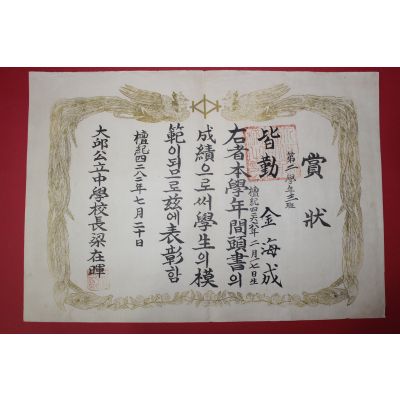 賞狀
第一學年三班
皆勤 金海成
檀紀四二六六年二月一七日生
右者本學年間頭書의
成績으로써學生의模
範이되므로玆에表彰함
檀紀四二八二年七月二十日
大邱公立中學校長梁在暉